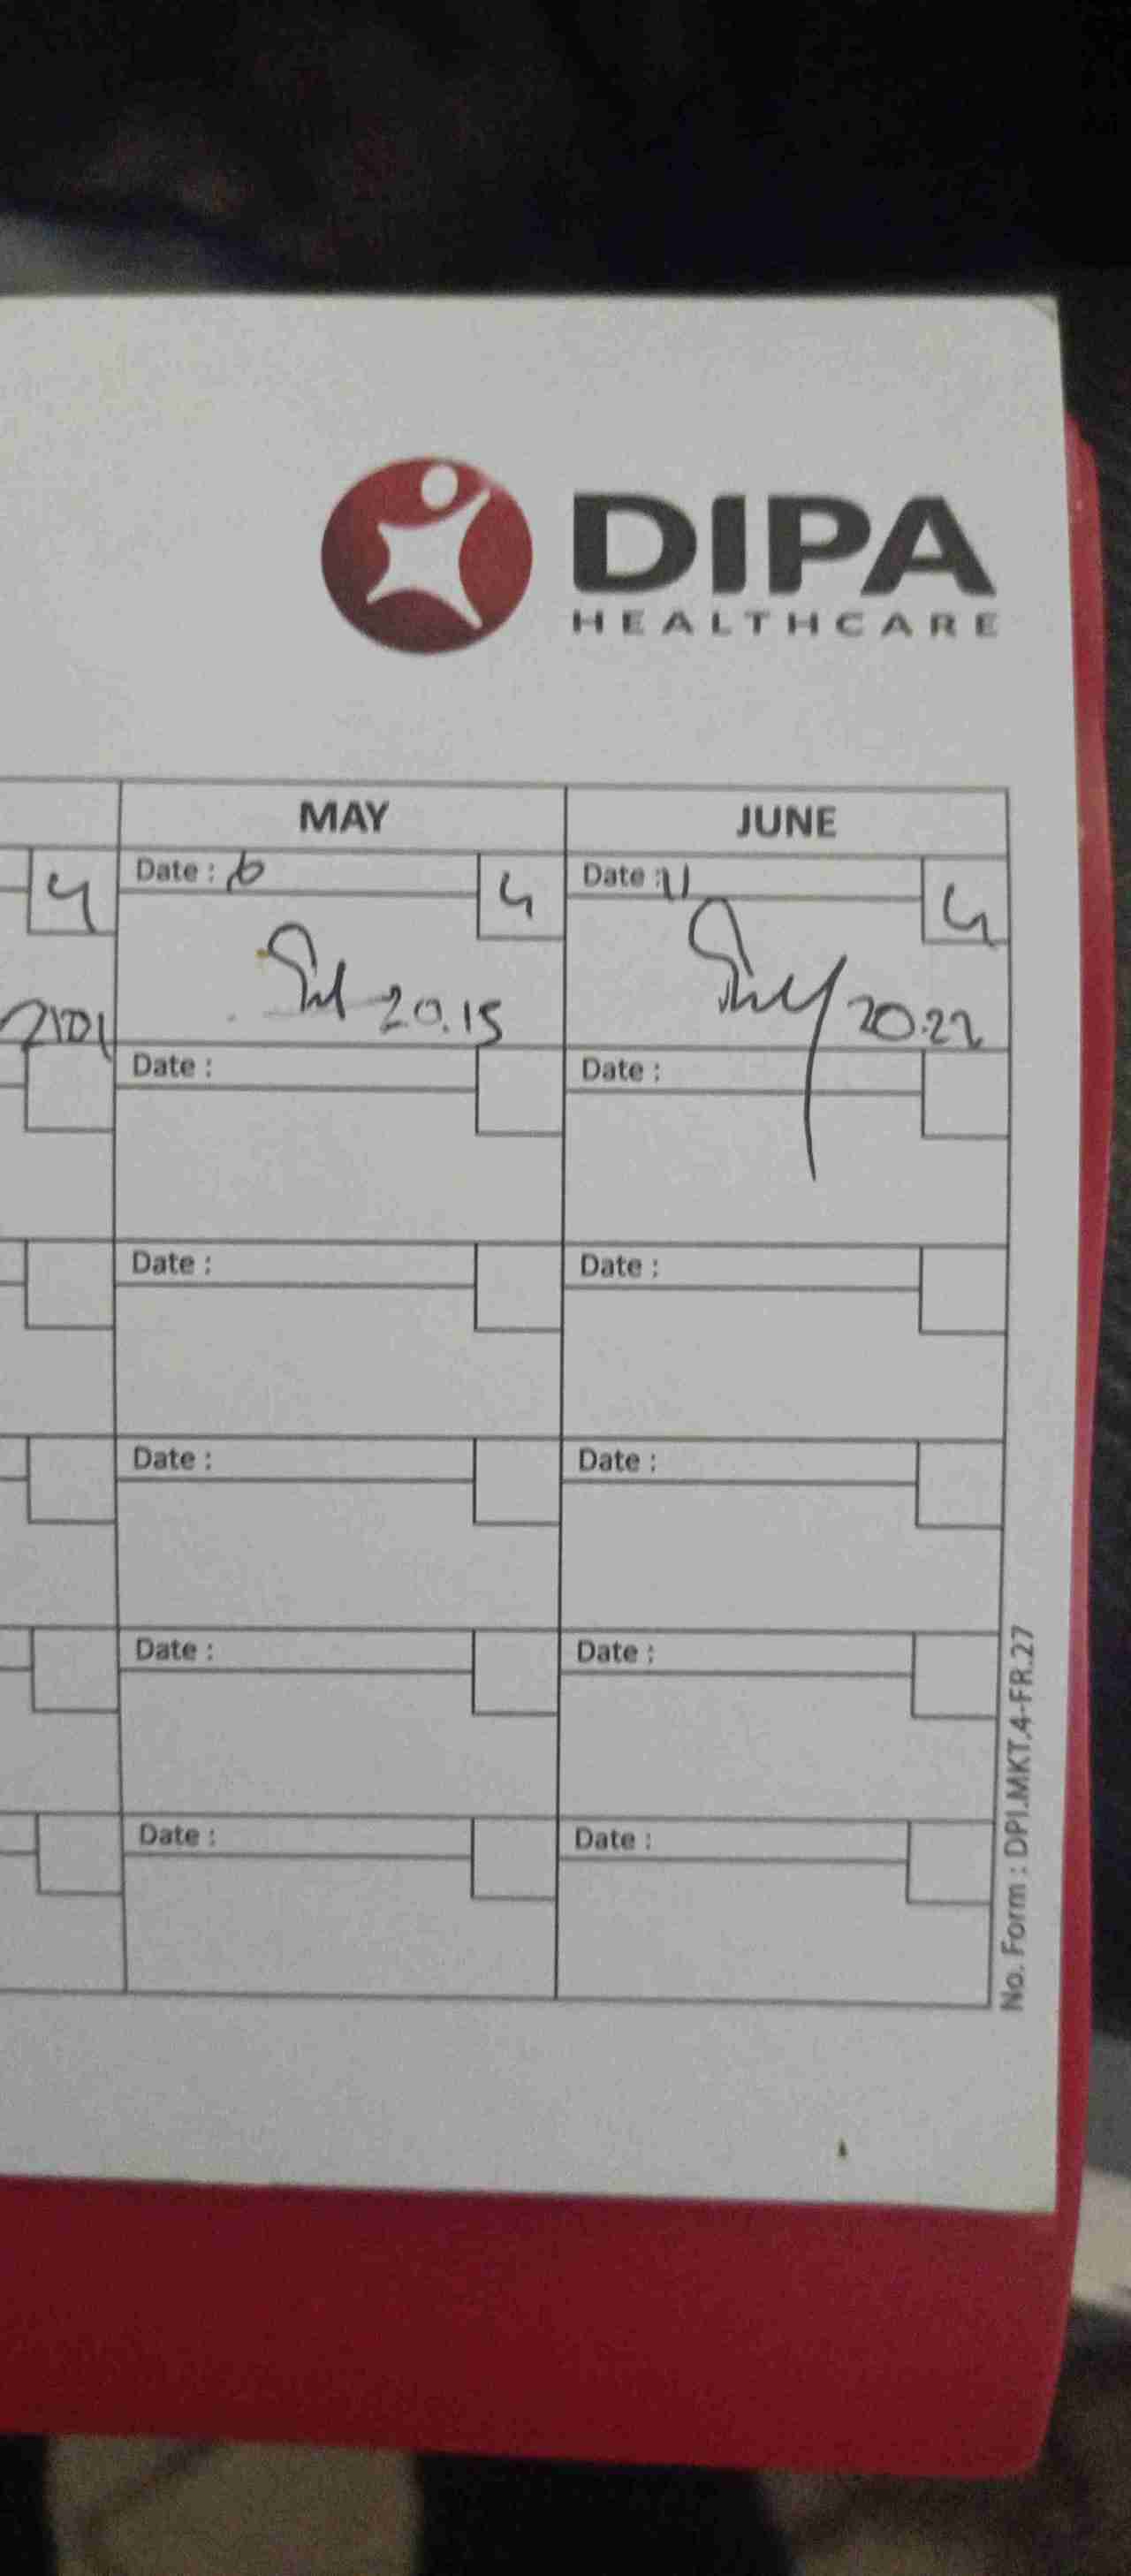 DIPA
HEALTHCARE
MAY JUNE
4 Date : 6 4 Date : 11 4
20.15 20.22
Date : Date :
Date : Date :
Date : Date :
Date : Date :
Date : Date :
No. Form : DPI.MKT.4-FR.27